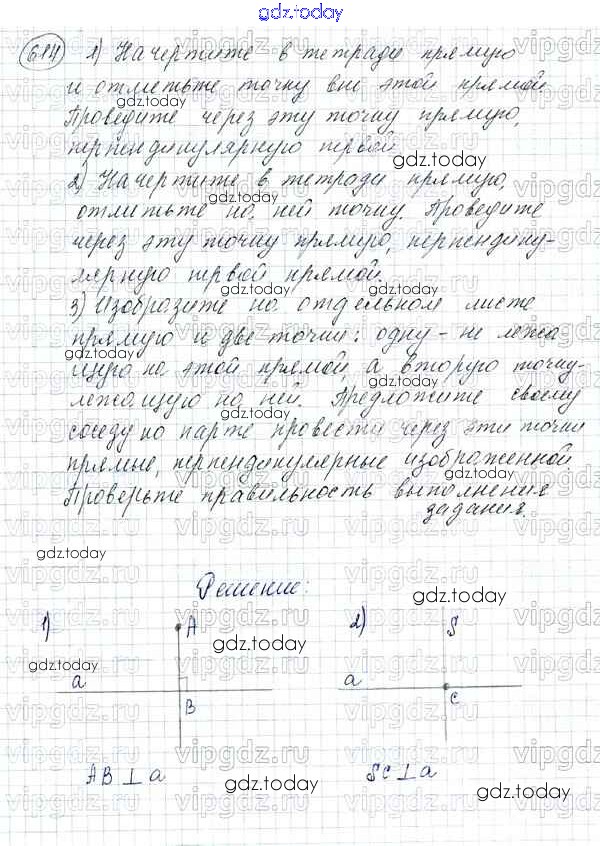 gdz.today
614 1) Начертите в тетради прямую
и отметьте точку вне этой прямой.
Проведите через эту точку прямую,
перпендикулярную первой.
2) Начертите в тетради прямую,
отметьте на ней точку. Проведите
через эту точку прямую, перпендику-
лярную первой прямой.
3) Изобразите на отдельном листе
прямую и две точки: одну - не лежа
щую на этой прямой, а вторую точку-
лежащую на ней. Предложите своему
соседу по парте провести через эти точки
прямые, перпендикулярные изображенной.
Проверьте правильность выполнения
задания.
Решение:
1) A 2) S
a a
B C
AB ⊥ a SC ⊥ a